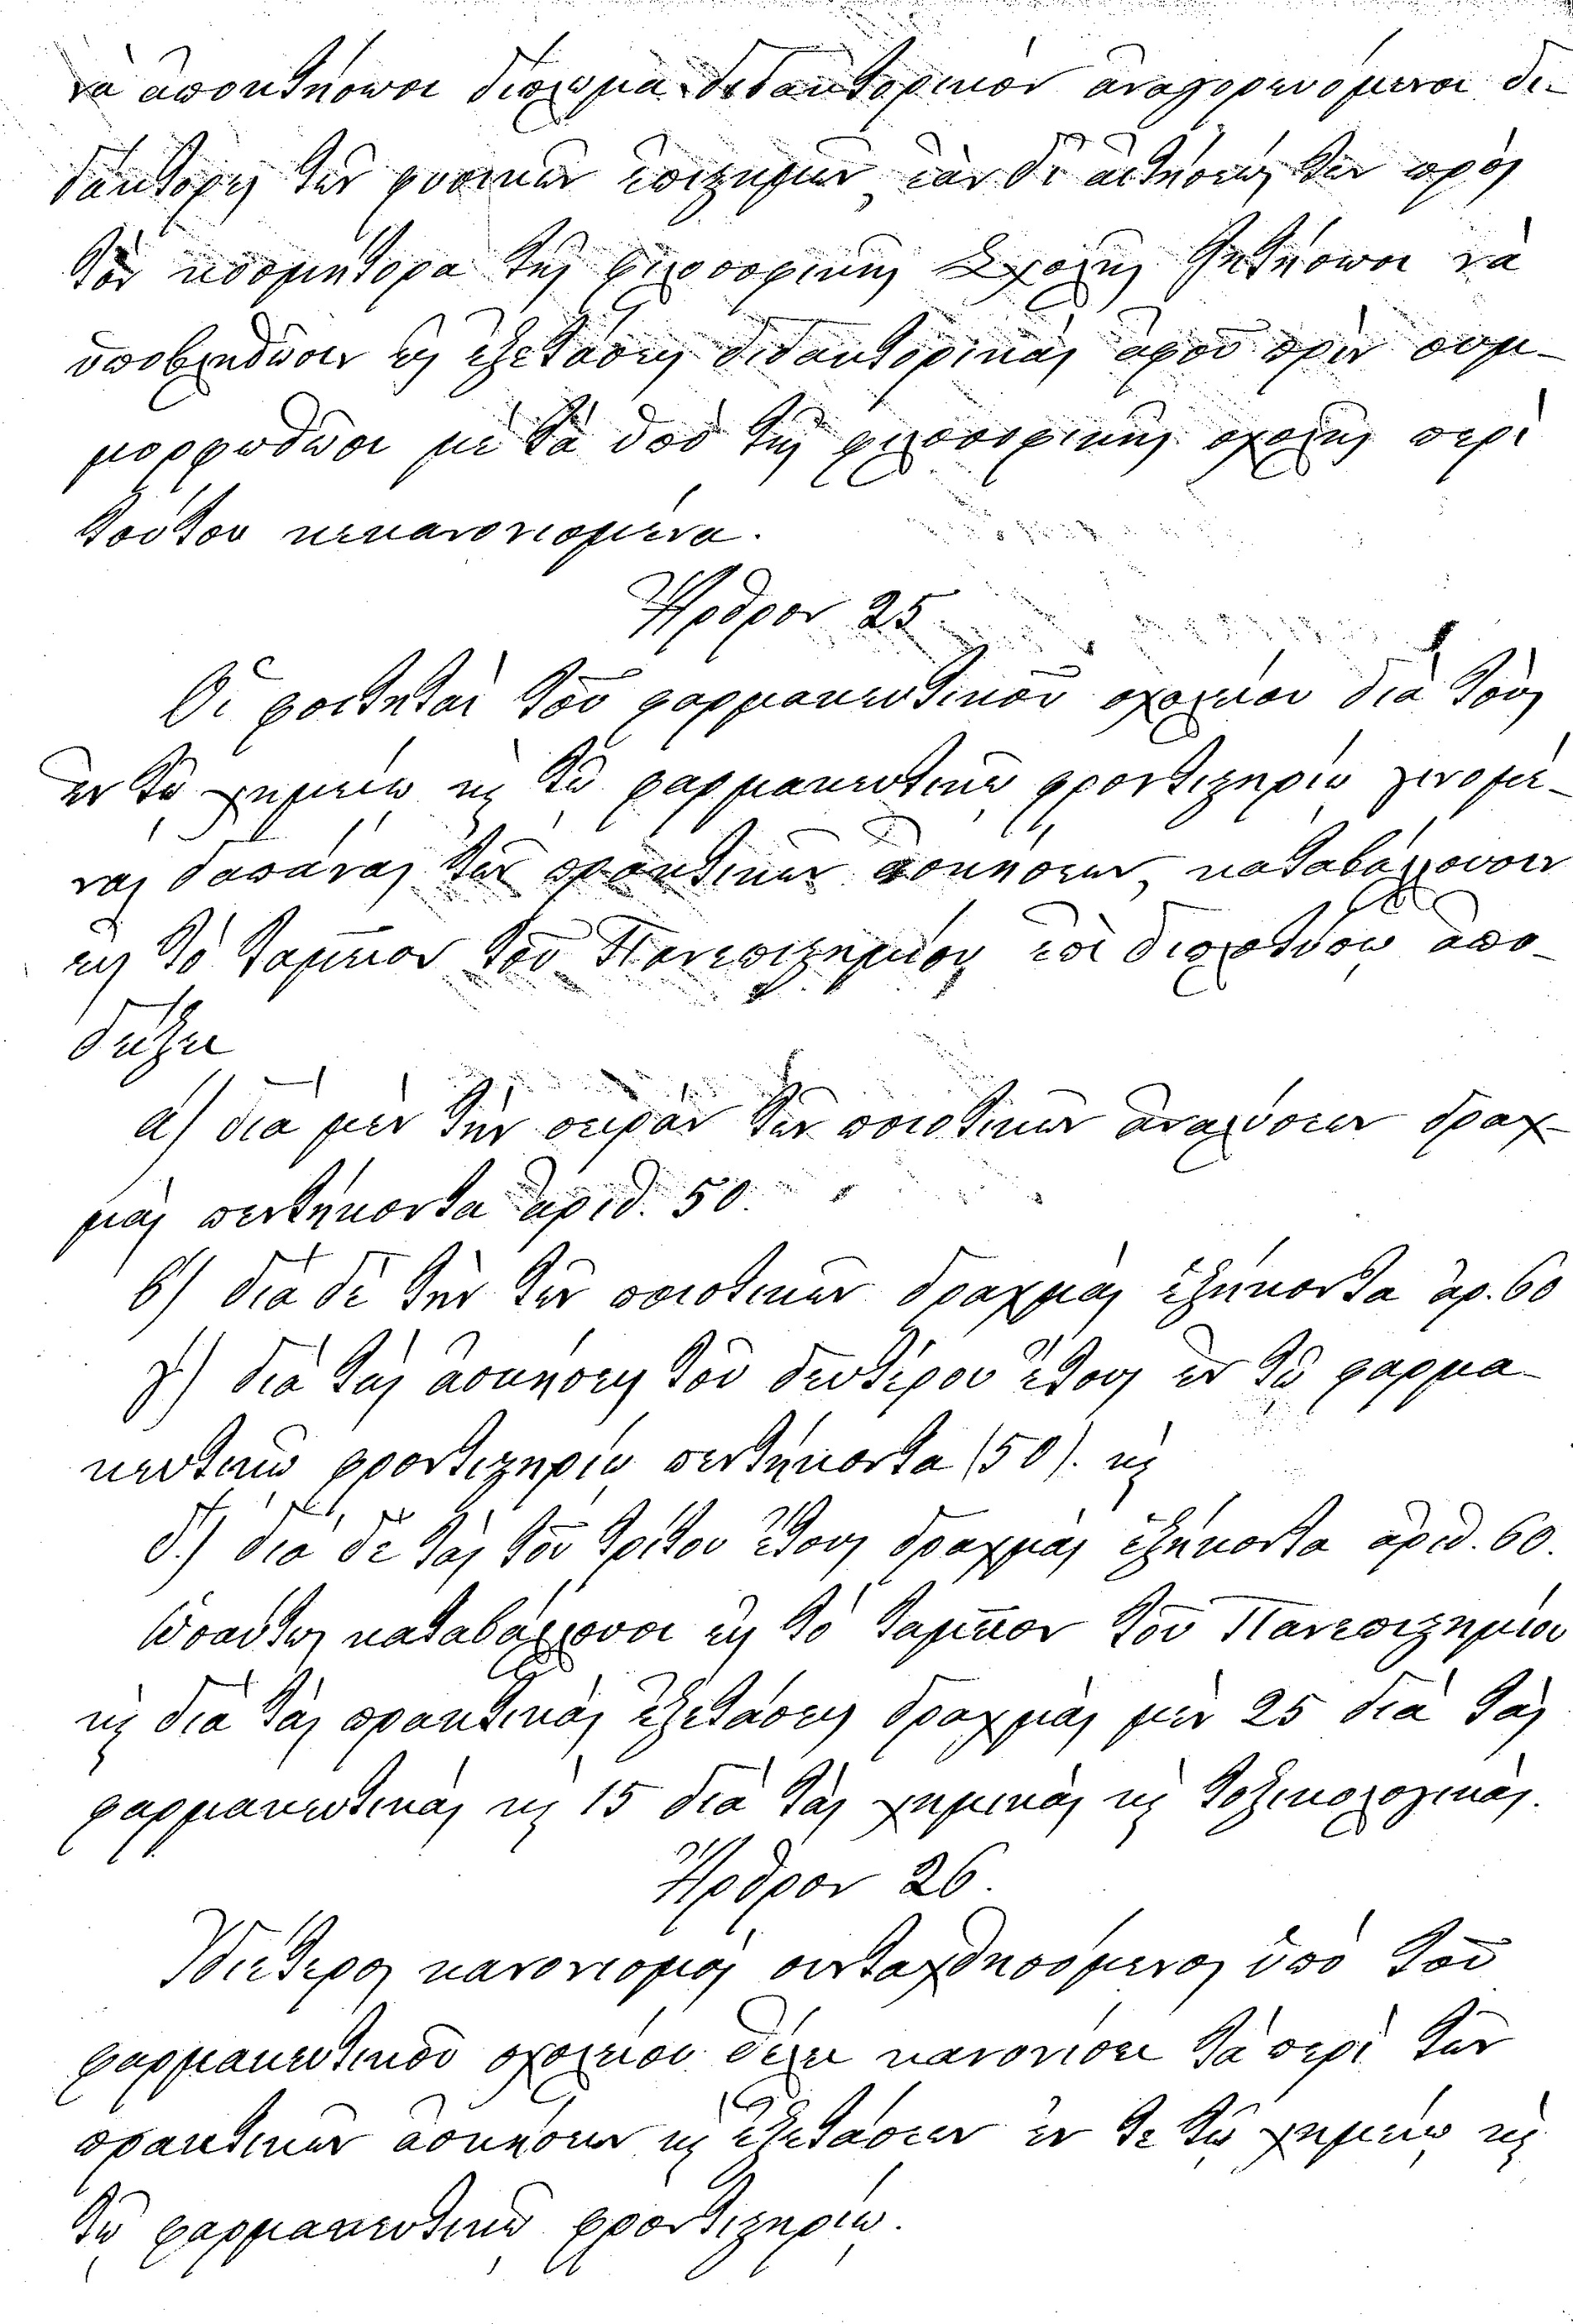 νὰ ἀποκτήσωσι δίπλωμα διδακτορικὸν ἀναγορευόμενοι δι-
δάκτορες τῶν φυσικῶν ἐπιστημῶν, ἐὰν δι' αἰτήσεώς των πρὸς
τὸν κοσμήτορα τῆς φιλοσοφικῆς Σχολῆς ζητήσωσι νὰ
ὑποβληθῶσιν εἰς ἐξετάσεις διδακτορικὰς ἀφοῦ πρὶν συμ-
μορφωθῶσι μὲ τὰ ὑπὸ τῆς φιλοσοφικῆς σχολῆς περὶ
τούτου κεκανονισμένα.
Ἄρθρον 25
Οἱ φοιτηταὶ τοῦ φαρμακευτικοῦ σχολείου διὰ τὰς
ἐν τῷ χημείῳ καὶ τῷ φαρμακευτικῷ φροντιστηρίῳ γινομέ-
νας δαπάνας τῶν πρακτικῶν ἀσκήσεων, καταβάλλουσιν
εἰς τὸ ταμεῖον τοῦ Πανεπιστημίου ἐπὶ διπλοτύπῳ ἀπο-
δείξει
α) διὰ μὲν τὴν σειρὰν τῶν ποιοτικῶν ἀναλύσεων δραχ-
μὰς πεντήκοντα ἀριθ. 50.
β) διὰ δὲ τὴν τῶν ποσοτικῶν δραχμὰς ἑξήκοντα ἀρ. 60
γ) διὰ τὰς ἀσκήσεις τοῦ δευτέρου ἔτους ἐν τῷ φαρμα-
κευτικῷ φροντιστηρίῳ πεντήκοντα (50). καὶ
δ.) διὰ δὲ τὰς τοῦ τρίτου ἔτους δραχμὰς ἑξήκοντα ἀριθ. 60.
Ὡσαύτως καταβάλλουσι εἰς τὸ ταμεῖον τοῦ Πανεπιστημίου
καὶ διὰ τὰς πρακτικὰς ἐξετάσεις δραχμὰς μὲν 25 διὰ τὰς
φαρμακευτικὰς καὶ 15 διὰ τὰς χημικὰς καὶ τοξικολογικάς.
Ἄρθρον 26.
Ἰδιαίτερος κανονισμὸς συνταχθησόμενος ὑπὸ τοῦ
φαρμακευτικοῦ σχολείου θέλει κανονίσει τὰ περὶ τῶν
πρακτικῶν ἀσκήσεων καὶ ἐξετάσεων ἔν τε τῷ χημείῳ καὶ
τῷ φαρμακευτικῷ φροντιστηρίῳ.